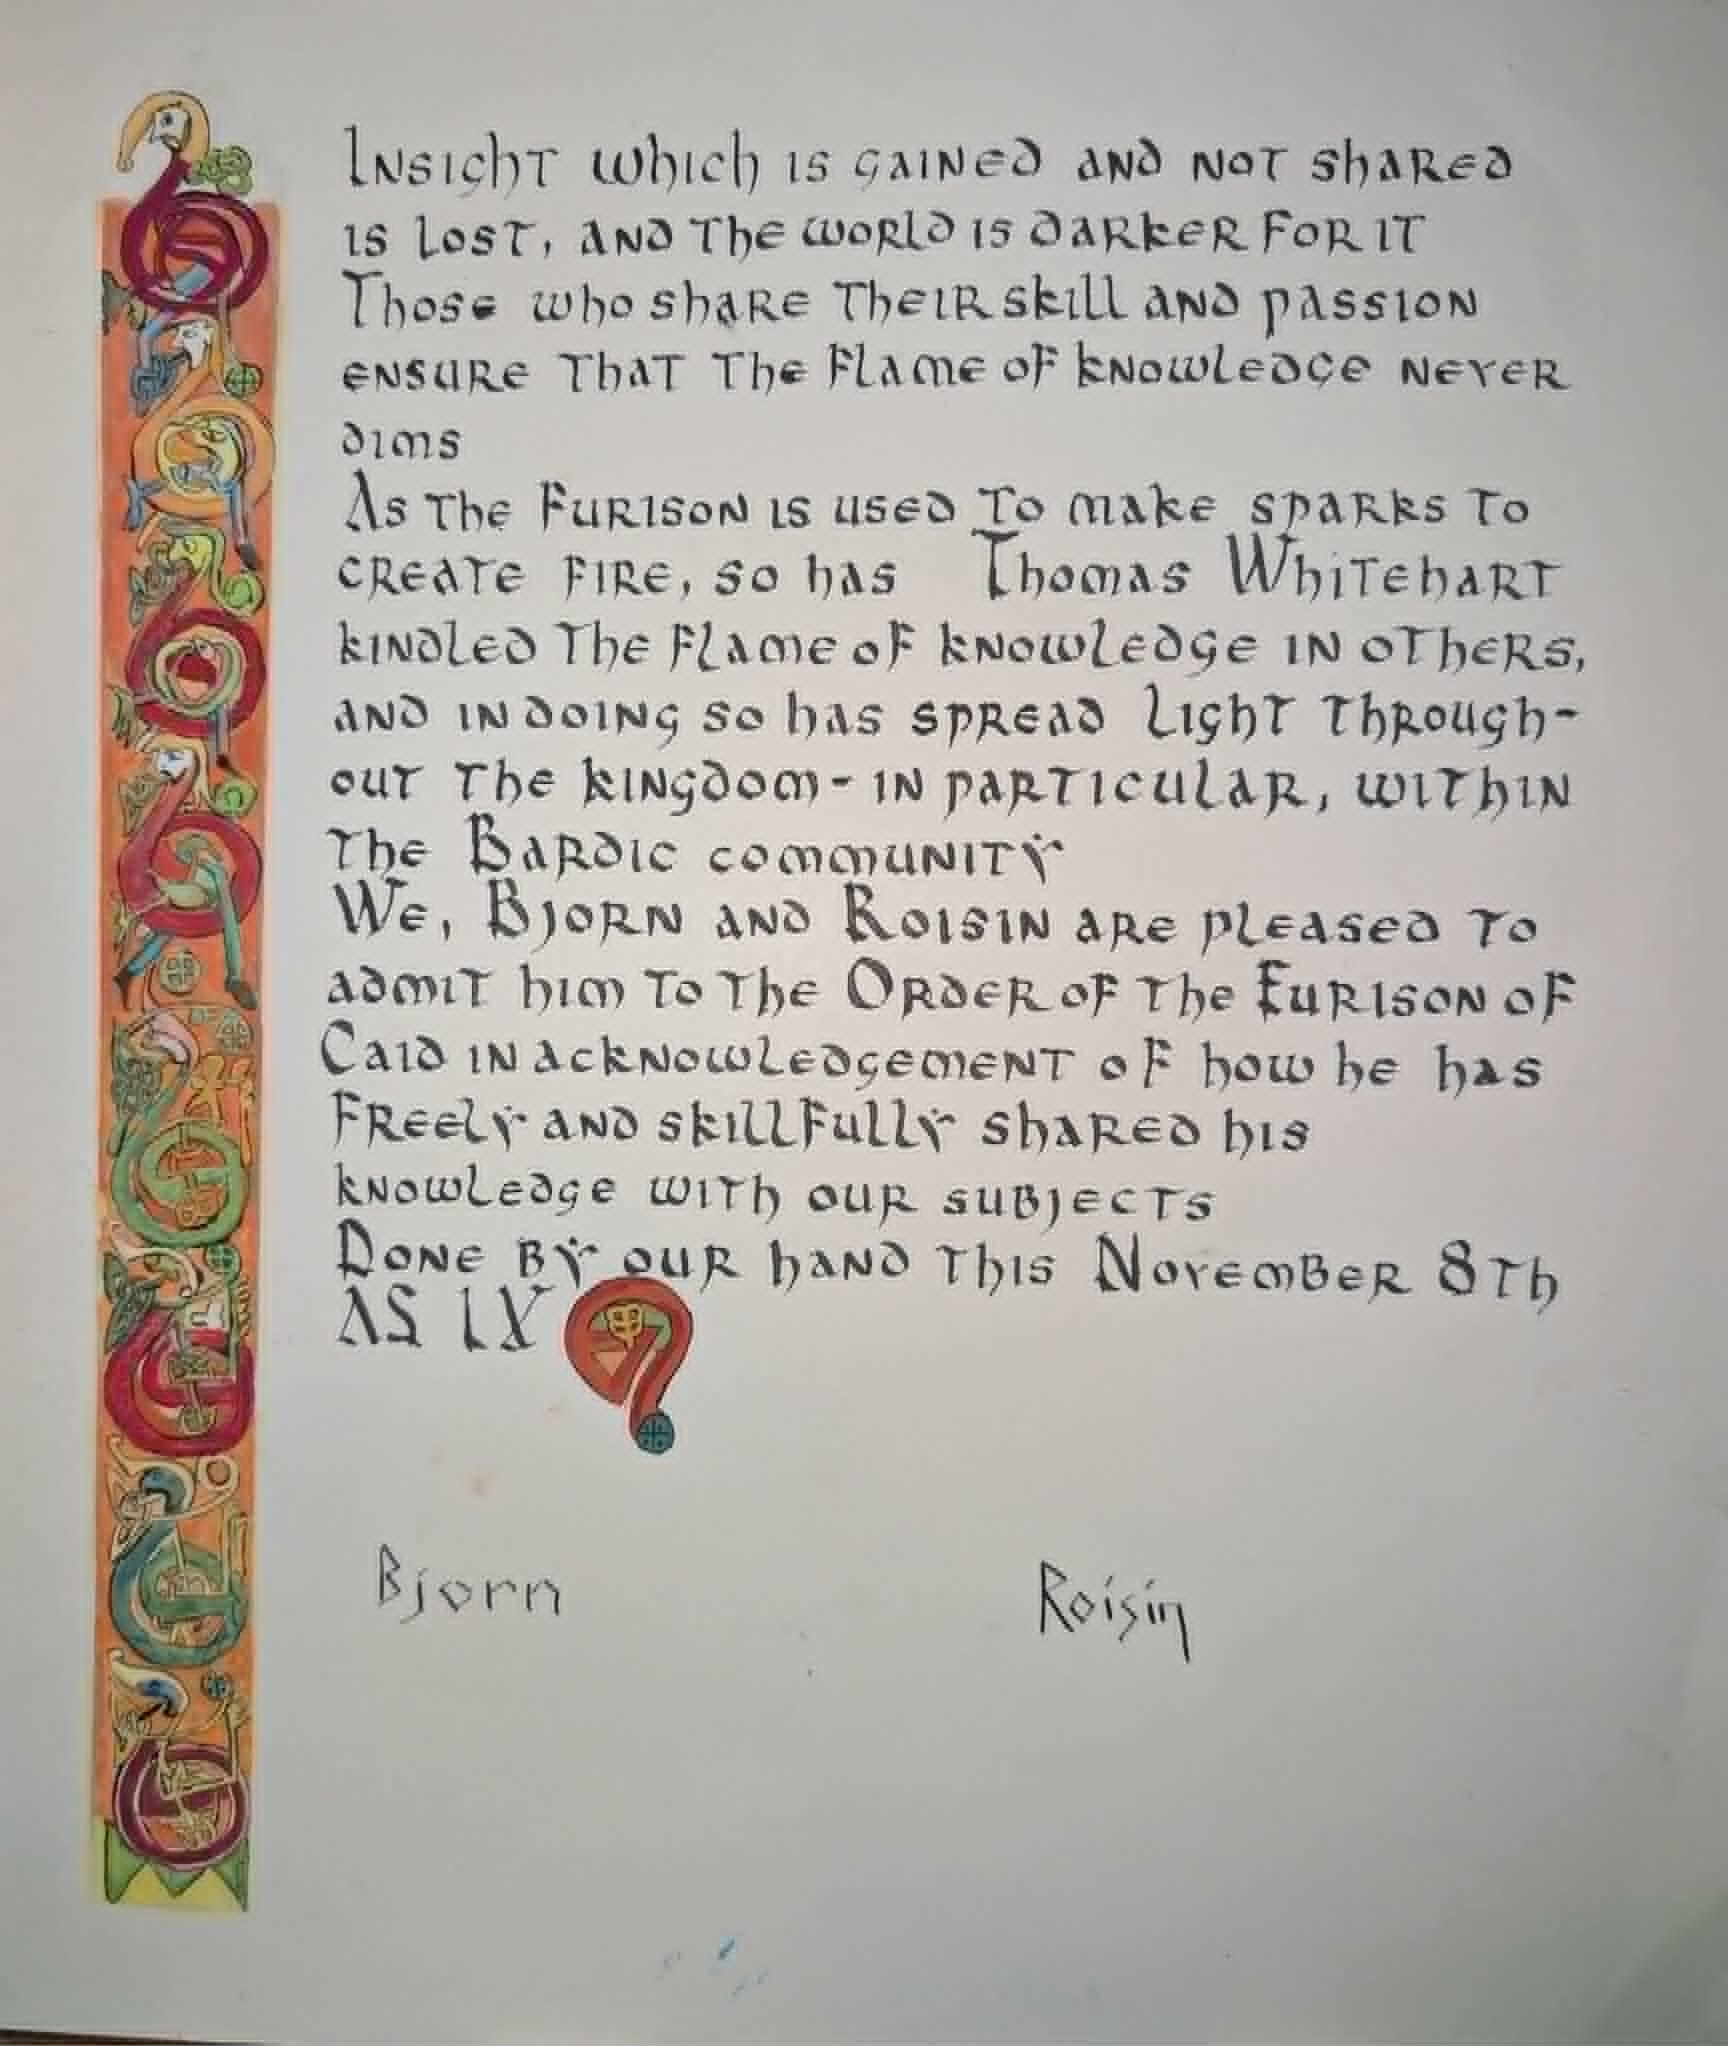 Insight which is gained and not shared
is lost, and the world is darker for it
Those who share their skill and passion
ensure that the flame of knowledge never
dims
As the Furison is used to make sparks to
create fire, so has Thomas Whitehart
kindled the flame of knowledge in others,
and in doing so has spread light through-
out the kingdom - in particular, within
the Bardic community
We, Bjorn and Roisin are pleased to
admit him to the Order of the Furison of
Caid in acknowledgement of how he has
freely and skillfully shared his
knowledge with our subjects
Done by our hand this November 8th
AS LX
Bjorn
Roisin